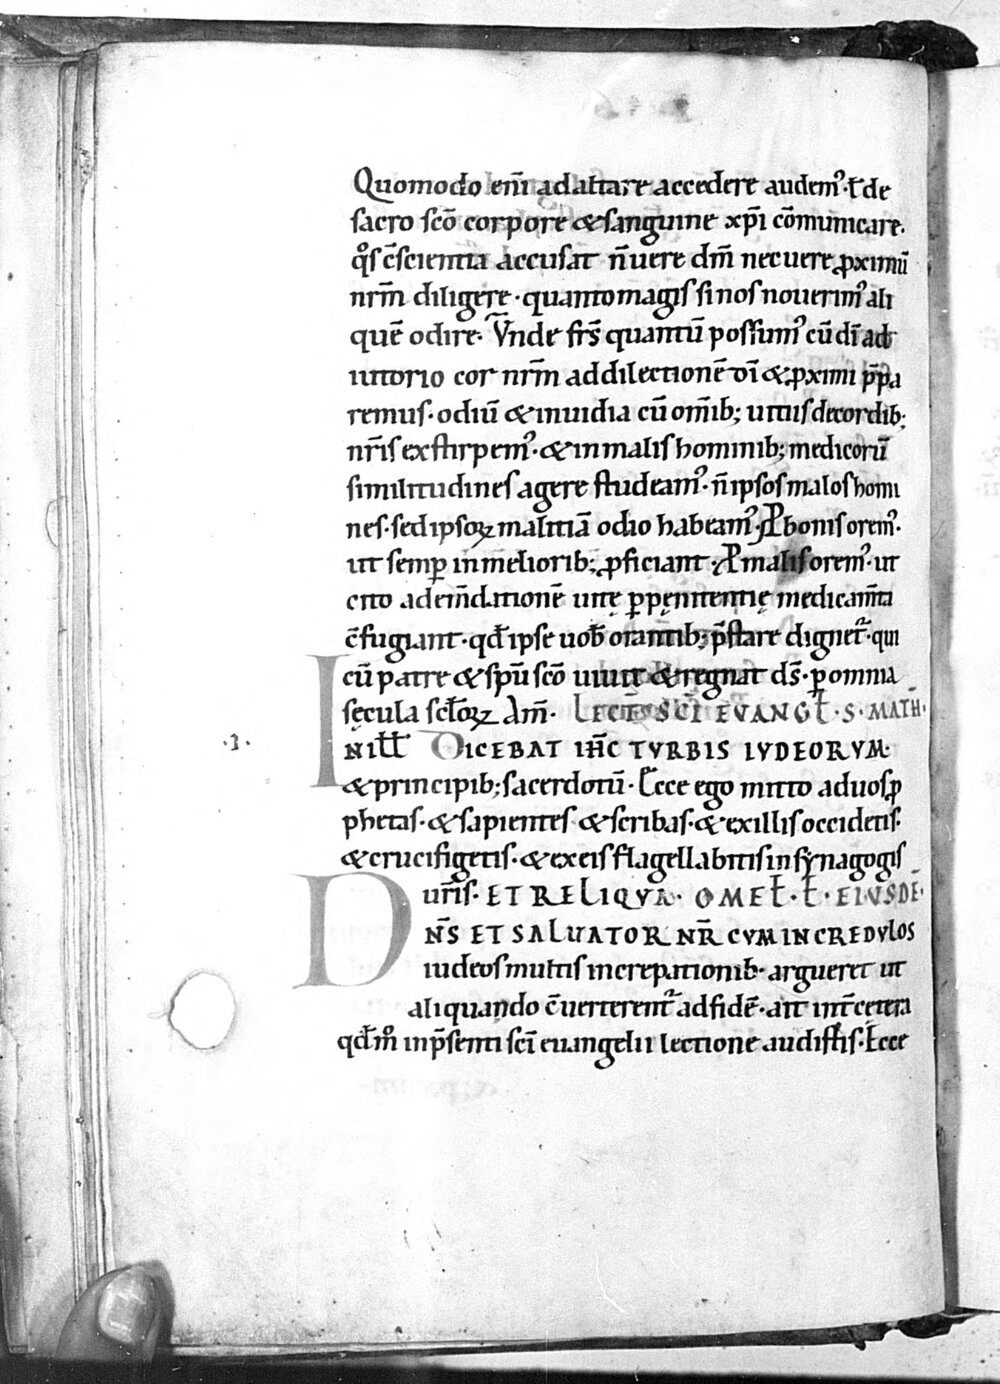 Quomodo enĩ ad altare accedere audemꝰ· ł de
sacro scõ corpore & sanguine xp̃i cõmunicare·
q̊s c̃scientia accusat̃ ñ uere dm̃ nec uere ꝓximũ
nrm̃ diligere· quanto magis si nos nouerimꝰ ali
quẽ odire· Vnde frs̃ quantũ possumꝰ cũ dĩ ad
iutorio cor nrm̃ ad dilectionẽ dĩ & ꝓximi p̃pa
remus· odiũ & inuidia cũ omĩb; uitiis de cordib;
nr̃is exstirpemꝰ· & in malis hominib; medicorũ
similitudines agere studeamꝰ· ñ ipsos malos homi
nes· sed ipsoꝝ malitiã odio habeamꝰ· P bonis oremꝰ·
ut semꝑ in meliorib; ꝓficiant· P malis oremꝰ· ut
cito ad em̃dationẽ uitę ꝑ pęnitentię medicam̃ta
c̃fugiant· qđ ipse uob̃ orantib; p̃stare dignet᷑· qui
cũ patre & sp̃u scõ uiuit & regnat ds̃· ꝑ omnia
sęcula scł̃oꝝ am̃· LECT̃ SC̃I EVANGŁ· S· MATH·
·I· INIŁŁ DICEBAT IHC̃ TVRBIS IVDEORVM·
& principib; sacerdotũ· Ecce ego mitto ad uos ꝓ
phetas· & sapientes· & scribas· & ex illis occidetis·
& crucifigetis· & ex eis flagellabitis in synagogis
ur̃is· ET RELIQVA· OMEŁ· Ł· EIVSDẼ·
DÑS ET SALVATOR NR̃ CVM INCREDVLOS
iudeos multis increpationib· argueret ut
aliquando c̃uerterent᷑ ad fidẽ· ait int̃ cętera
qđm̊ in p̃senti sc̃i euangelii lectione audistis· Ecce